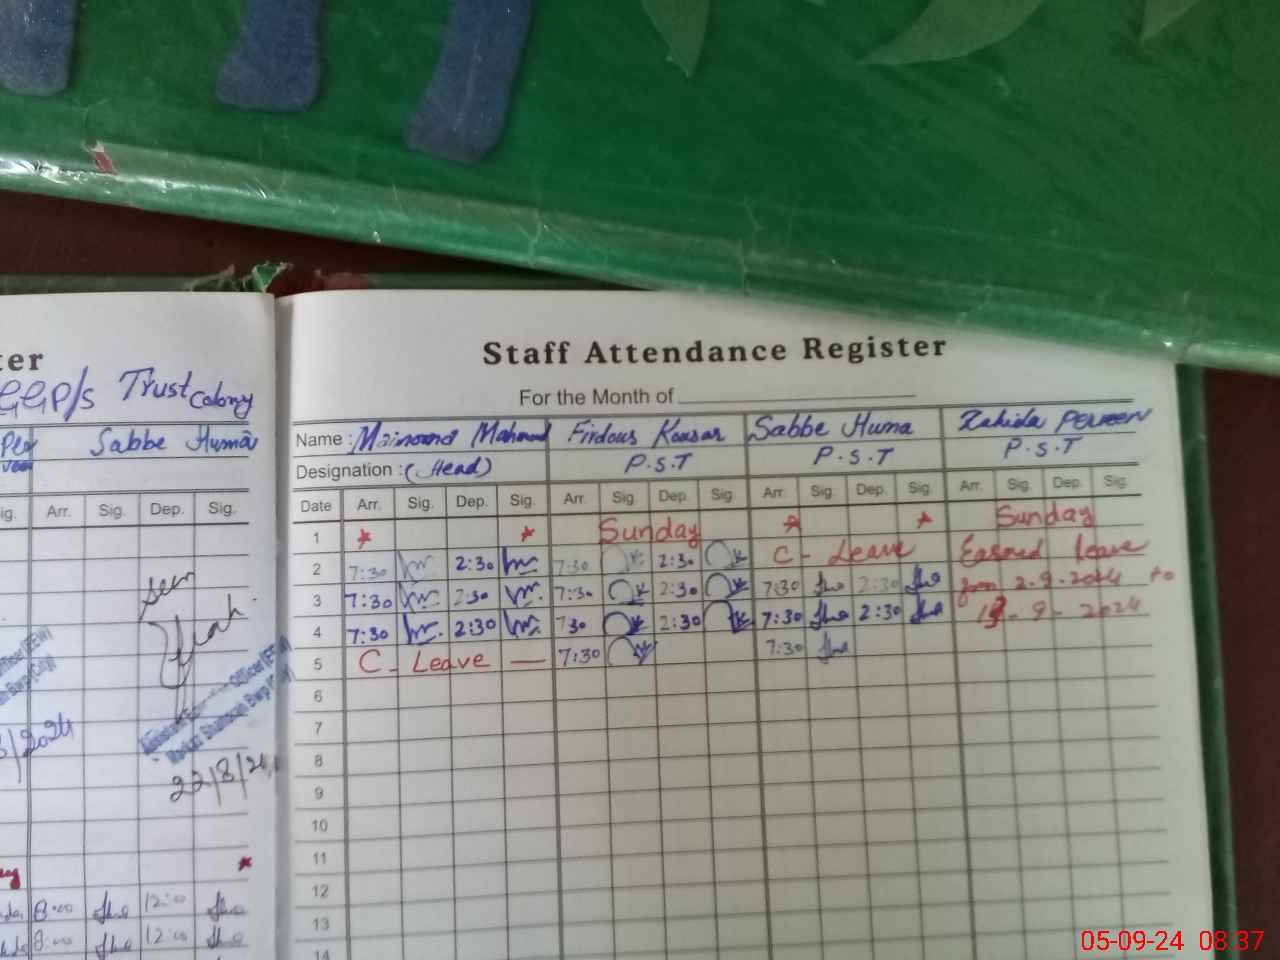 ter
GGP/s Trust Colony
Sabbe Huma
Arr. Sig. Dep. Sig.
seen
22/8/24
8:00 12:00
8:00 12:00
Staff Attendance Register
For the Month of
Name : Mahmood Firdous Kousar Sabbe Huma Zahida PERVEEN
Designation : (Head) P.S.T P.S.T P.S.T
Date Arr. Sig. Dep. Sig. Arr. Sig. Dep. Sig. Arr. Sig. Dep. Sig. Arr. Sig. Dep. Sig.
1 Sunday Sunday
2 7:30 2:30 7:30 2:30 C - Leave Earned Leave
3 7:30 2:30 7:30 2:30 7:30 2:30 from 2.9.2024 to
4 7:30 2:30 730 2:30 7:30 2:30 - 9 - 2024
5 C - Leave — 7:30 7:30
6
7
8
9
10
11
12
13
14
05-09-24 08:37